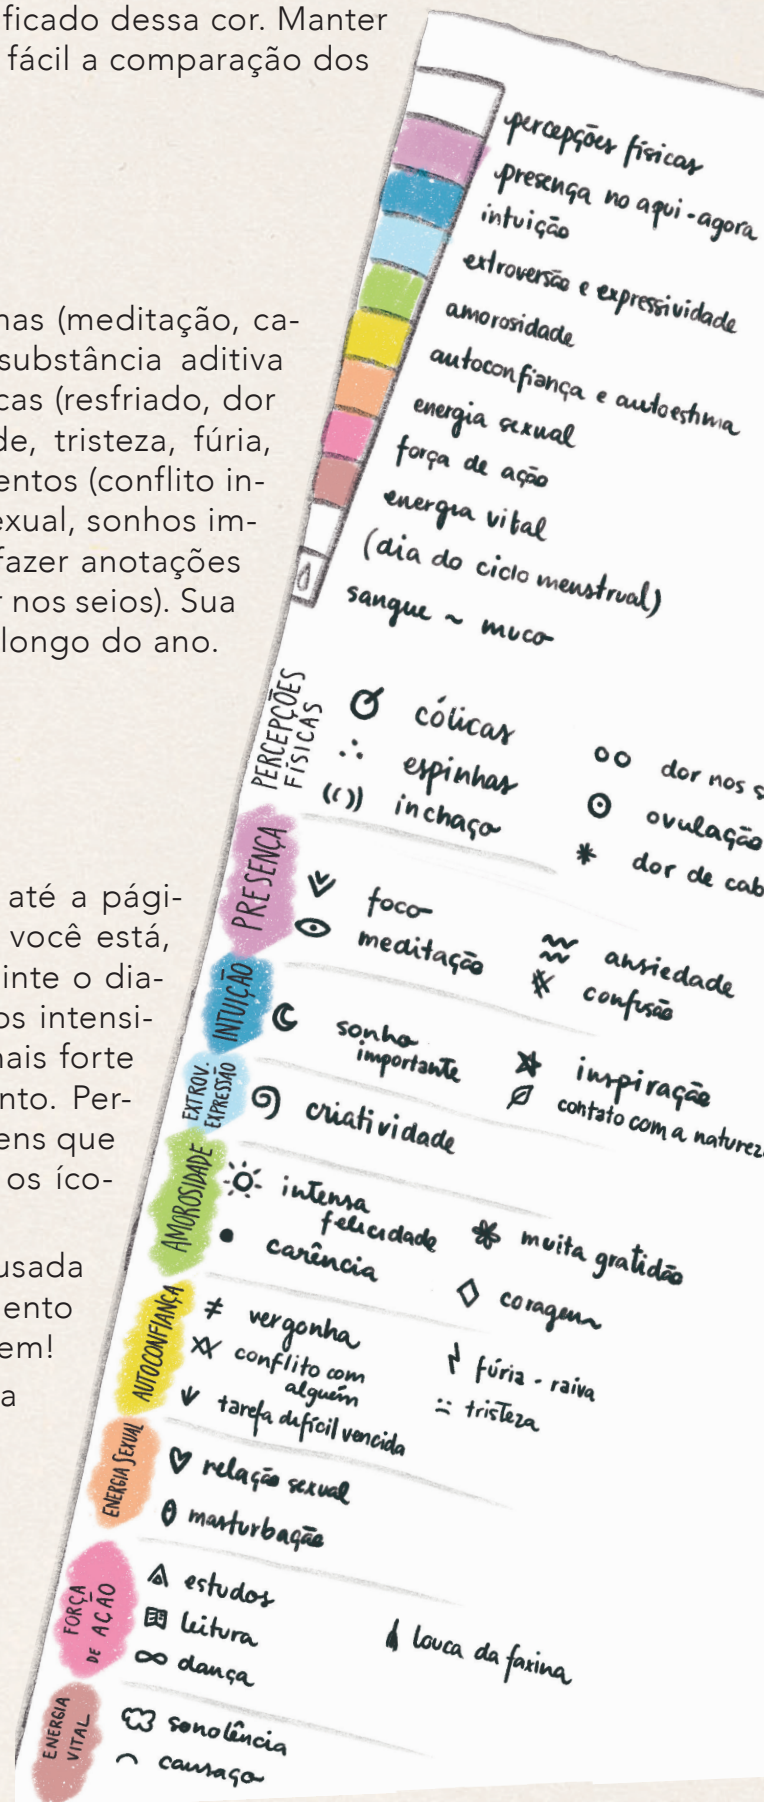 ficado dessa cor. Manter
fácil a comparação dos
nas (meditação, ca-
substância aditiva
cas (resfriado, dor
de, tristeza, fúria,
entos (conflito in-
exual, sonhos im-
fazer anotações
r nos seios). Sua
longo do ano.
até a pági-
você está,
inte o dia-
os intensi-
nais forte
nto. Per-
ens que
os íco-
usada
ento
em!
a
percepções físicas
presença no aqui-agora
intuição
extroversão e expressividade
amorosidade
autoconfiança e autoestima
energia sexual
força de ação
energia vital
(dia do ciclo menstrual)
sangue ~ muco
PERCEPÇÕES
FÍSICAS
cólicas
espinhas
inchaço
dor nos s
ovulação
dor de cab
PRESENÇA
foco
meditação
ansiedade
confusão
INTUIÇÃO
sonho
importante
inspiração
contato com a naturez
EXTROV.
EXPRESSÃO
criatividade
AMOROSIDADE
intensa
felicidade
carência
muita gratidão
coragem
AUTOCONFIANÇA
vergonha
conflito com
alguém
tarefa difícil vencida
fúria - raiva
tristeza
ENERGIA SEXUAL
relação sexual
masturbação
FORÇA
DE AÇÃO
estudos
leitura
dança
louca da faxina
ENERGIA
VITAL
sonolência
cansaço